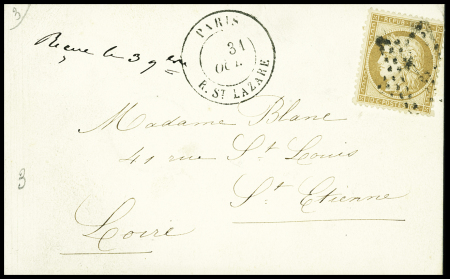 3
PARIS
31
OCT.
R. ST LAZARE
REPUB
POSTES
Reçue le 3 9bre
Madame Blanc
41 rue St Louis
St Etienne
Loire
3